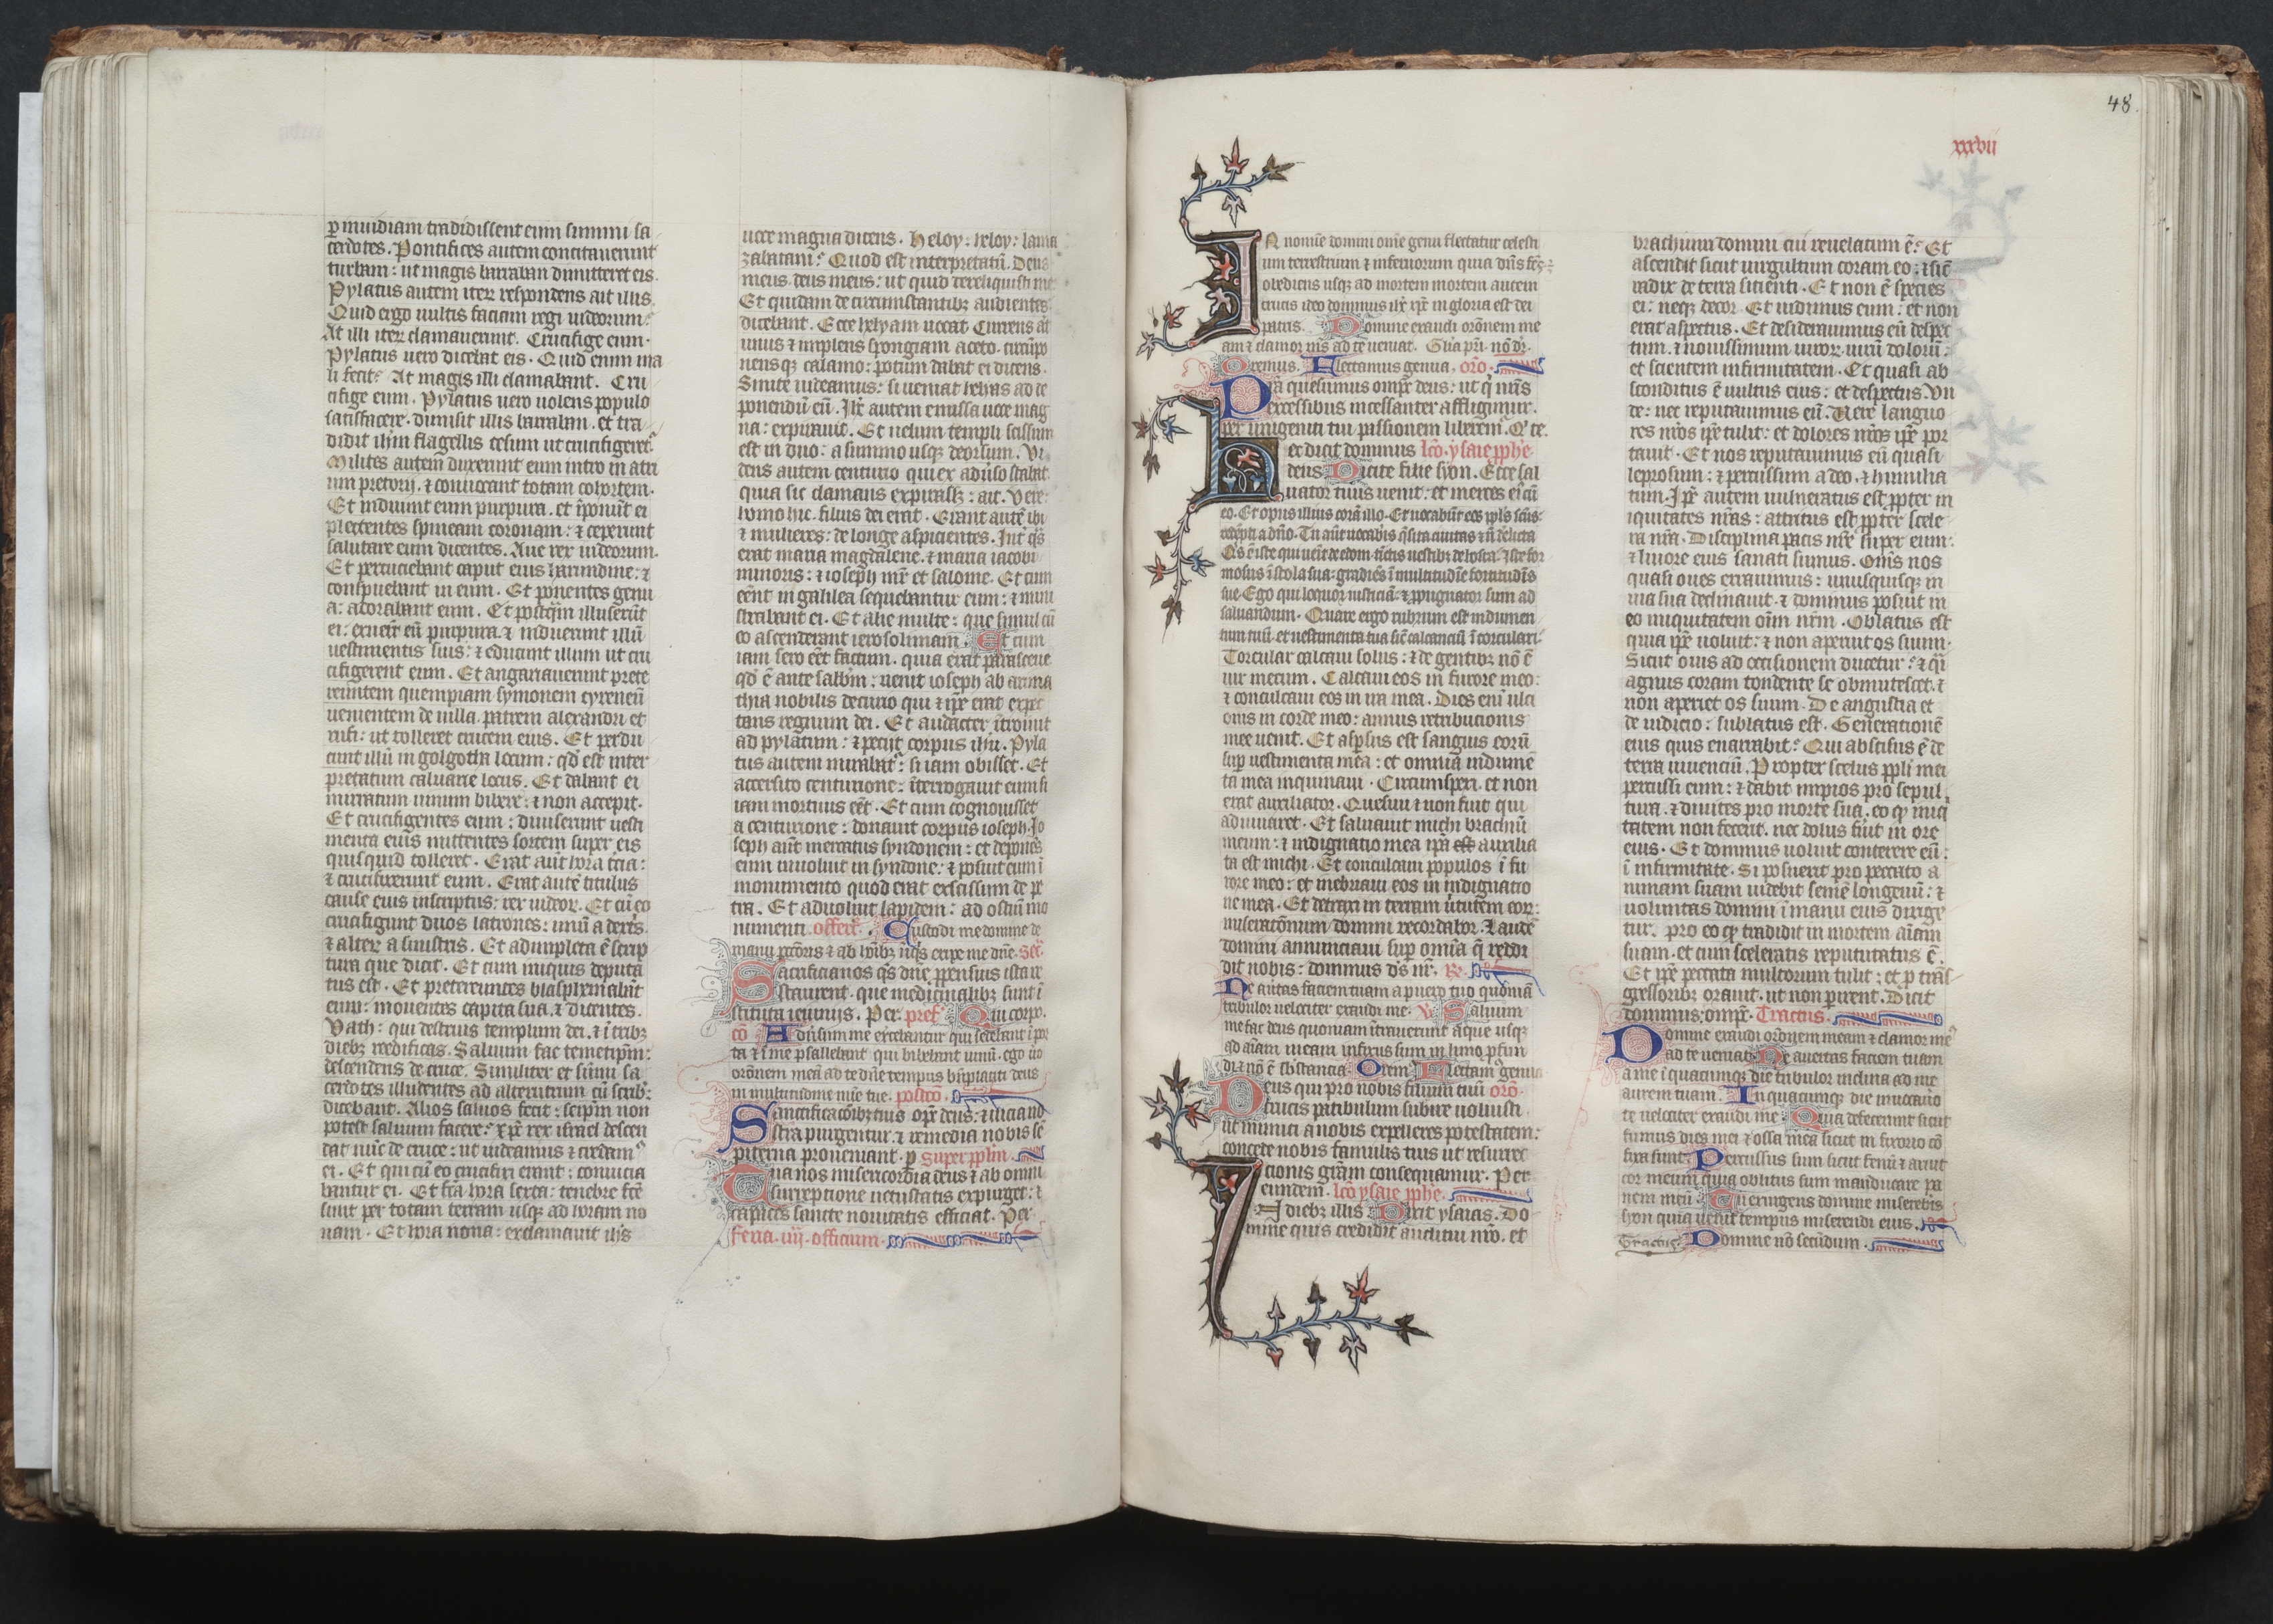 p inuidiam tradidissent eum summi sa
cerdotes. Pontifices autem concitauerunt
turbam: ut magis barraban dimitteret eis.
Pylatus autem iterum respondens ait illis.
Quid ergo uultis faciam regi iudeorum?
At illi iterum clamauerunt. Crucifige eum.
Pylatus uero dicebat eis. Quid enim ma
li fecit? At magis illi clamabant. Cru
cifige eum. Pylatus uero uolens populo
satisfacere. dimisit illis barraban. et tra
didit ihm flagellis cesum ut crucifigeret.
Milites autem duxerunt eum intro in atri
um pretorij. ⁊ conuocant totam cohortem.
Et induunt eum purpura. et iponut ei
plectentes spineam coronam: ⁊ ceperunt
salutare eum dicentes. Aue rex iudeorum.
Et percutiebant caput eius harundine: ⁊
conspuebant in eum. Et ponentes genu
a: adorabant eum. Et postqm illuserut
ei: exuert eu purpura. ⁊ induerunt illu
uestimentis suis: ⁊ educunt illum ut cru
cifigerent eum. Et angariauerunt prete
reuntem quempiam symonem cyreneu
uenientem de uilla. patrem alexandri et
rufi: ut tolleret crucem eius. Et perdu
cunt illu in golgotha locum: qd est inter
pretatum caluarie locus. Et dabant ei
mirratum uinum bibere: ⁊ non accepit.
Et crucifigentes eum: diuiserunt uesti
menta eius mittentes sortem super eis
quis quid tolleret. Erat aut hora tcia:
⁊ crucifixerunt eum. Erat aute titulus
cause eius inscriptus: rex iudeor. Et cu eo
crucifigunt duos latrones: unu a dextris.
⁊ alter a sinistris. Et adimpleta e scrip
tura que dicit. Et cum iniquis deputa
tus est. Et pretereuntes blasphemabant
eum: mouentes capita sua. ⁊ dicentes.
Vath: qui destruis templum dei. ⁊ i tribz
diebz reedificas. Saluum fac temetipm:
descendens de cruce. Similiter et sumi sa
cerdotes illudentes ad alterutrum cu scribis
dicebant. Alios saluos fecit: seipm non
potest saluum facere. xpc rex israel descen
dat nuc de cruce: ut uideamus ⁊ credam
ei. Et qui cu eo crucifixi erant: conuicia
bantur ei. Et fca hora sexta: tenebre fce
sunt per totam terram usqz ad horam no
nam. Et hora nona: exclamauit ihs
uoce magna dicens. Heloy: heloy: lama
zabatani? Quod est interpretatu. Deus
meus deus meus: ut quid dereliquisti me
Et quidam de circumstantibz audientes:
dicebant. Ecce helyam uocat. Currens aut
unus ⁊ implens spongiam aceto. circupo
nensqz calamo: potum dabat ei dicens.
Sinite uideamus: si ueniat helyas ad de
ponendu eu. Ihc autem emissa uoce mag
na: expirauit. Et uelum templi scissum
est in duo: a summo usqz deorsum. Vi
dens autem centurio qui ex aduso stabat.
quia sic clamans expirasset: ait. Vere
homo hic. filius dei erat. Erant aute ibi
⁊ mulieres: de longe aspicientes. Int qs
erat maria magdalene. ⁊ maria iacobi
minoris: ⁊ ioseph mr et salome. Et cum
eent in galilea sequebantur eum: ⁊ mini
strabant ei. Et alie multe: que simul cu
eo ascenderant ierosolimam. Et cum
iam sero eet factum. quia erat parasceue
qd e ante sabbm: uenit ioseph ab arima
thia nobilis decurio qui ⁊ ipe erat expec
tans regnum dei. Et audacter itroiuit
ad pylatum: ⁊ petijt corpus ihu. Pyla
tus autem mirabat: si iam obisset. Et
accersito centurione: iterrogauit eum si
iam mortuus eet. Et cum cognouisset
a centurione: donauit corpus ioseph. Jo
seph aut mercatus syndonem: et deponens
eum inuoluit in syndone: ⁊ posuit eum i
monumento quod erat excissum de pe
tra. Et aduoluit lapidem: ad ostiu mo
numenti. offert. Custodi me domine de
manu pctoris ⁊ ab hoibz iniqs eripe me dne. Sec
Sacrificia nos qs dne ppensius ista re
staurent. que medicinalibz sunt i
stituta ieiunijs. Per. pref. Qui corpo.
co Aduersum me exercebantur qui sedebant i por
ta ⁊ i me psallebant qui bibebant uinu. ego uo
oronem mea ad te dne tempus bnplaciti deus
in multitudine mie tue. postco
Sanctificacoibz tuis opc deus: ⁊ uicia no
stra purgentur. ⁊ remedia nobis se
piterna proueniant. p super pplm.
Tua nos misericordia deus ⁊ ab omni
surreptione uetustatis expurget: ⁊
capaces sancte nouitatis efficiat. Per.
feria. iiij. officium.
48
xxxvii
IN nomine domini ome genu flectatur celesti
um terrestrium ⁊ infernorum quia dns fcs
obediens usqz ad mortem mortem autem
crucis ideo dominus ihc xpc in gloria est dei
patris. Domine exaudi oronem me
am ⁊ clamor ms ad te ueniat. Gla pri. no dr.
Oremus. Flectamus genua. oro.
Pra quesumus omps deus: ut q nris
excessibus incessanter affligimur.
per unigeniti tui passionem liberem. Q te.
Hec dicit dominus lco ysaie pphe
deus Dicite filie syon. Ecce sal
uator tuus uenit: et merces ei cu
eo. Et opus illius cora illo. Et uocabut eos ppls scus:
redepti a dno. Tu aut uocabis qsita ciuitas ⁊ n delicta
Qs e iste qui uenit de edom. tictis uestibz de bosra. Iste for
mosus i stola sua: gradies i multitudie fortitudis
sue. Ego qui loquor iusticia: ⁊ ppugnator sum ad
saluandum. Quare ergo rubrum est indumen
tum tuu. et uestimenta tua sic calcanciu i torculari
Torcular calcaui solus: ⁊ de gentibz no e
uir mecum. Calcaui eos in furore meo:
⁊ conculcaui eos in ira mea. Dies eni ulci
onis in corde meo: annus retributionis
mee uenit. Et aspsus est sanguis eoru
sup uestimenta mea: et omnia indume
ta mea inquinaui. Circumspexi. et non
erat auxiliator. Quesiui ⁊ non fuit qui
adiuuaret. Et saluauit michi brachiu
meum: ⁊ indignatio mea ipa est auxilia
ta est michi. Et conculcaui populos i fu
rore meo: et inebriaui eos in indignatio
ne mea. Et detraxi in terram uirtutem eor:
miseratonum domini recordabor. Laude
domini annunciaui sup omia q reddi
dit nobis: dominus ds nr. R.
Ne auertas faciem tuam a puero tuo quonia
tribulor uelociter exaudi me. V. Saluum
me fac deus quoniam itrauerunt aque usqz
ad aiam meam infixus sum in limo pfun
di ⁊ no e sbstancia Orem Flectam genua
Deus qui pro nobis filium tuu oro.
crucis patibulum subire uoluisti.
ut inimici a nobis expelleres potestatem:
concede nobis famulis tuis ut resurrec
cionis gram consequamur. Per
eundem. lco ysaie pphe.
In diebz illis Dixit ysaias. Do
mine quis credidit auditui nro. et
brachium domini cui reuelatum e? Et
ascendit sicut uirgultum coram eo: ⁊ sic
radix de terra sitienti. Et non e species
ei: neqz decor. Et uidimus eum: et non
erat aspectus. Et desiderauimus eu despec
tum. ⁊ nouissimum uiror. uiru doloru:
et scientem infirmitatem. Et quasi ab
sconditus e uultus eius: et despectus. Vn
de: nec reputauimus eu. Vere languo
res nros ipe tulit: et dolores nros ipe por
tauit. Et nos reputauimus eu quasi
leprosum: ⁊ percussum a deo. ⁊ humilia
tum. Ipe autem uulneratus est ppter in
iquitates nras: attritus est ppter scele
ra nra. Disciplina pacis nre super eum:
⁊ liuore eius sanati sumus. Oms nos
quasi oues errauimus: unusquisqz in
uia sua declinauit. ⁊ dominus posuit in
eo iniquitatem oim nrm. Oblatus est
quia ipe uoluit: ⁊ non aperuit os suum.
Sicut ouis ad occisionem ducetur: ⁊ qi
agnus coram tondente se obmutescet. ⁊
non aperiet os suum. De angustia et
de iudicio: sublatus est. Generatione
eius quis enarrabit? Qui abscisus e de
terra uiuenciu. Propter scelus ppli mei
percussi eum: ⁊ dabit impios pro sepul
tura. ⁊ diuites pro morte sua. eo qp iniqi
tatem non fecerit. nec dolus fuit in ore
eius. Et dominus uoluit conterere eu:
i infirmitate. Si posuerit pro peccato a
nimam suam uidebit seme longeuu: ⁊
uoluntas domini i manu eius dirige
tur. pro eo qp tradidit in mortem aiam
suam. et cum sceleratis reputatus e.
Et ipe peccata multorum tulit: et p tras
gressoribz orauit. ut non perirent. Dicit
dominus: omps. Tractus.
Domine exaudi oronem meam ⁊ clamor me
ad te ueniat. Ne auertas faciem tuam
a me i quacumqz die tribulor inclina ad me
aurem tuam. In quacumqz die inuocauero
te uelociter exaudi me. Quia defecerunt sicut
fumus dies mei ⁊ ossa mea sicut in frixorio co
frixa sunt. Percussus sum sicut fenu ⁊ aruit
cor meum quia oblitus sum manducare pa
nem meu. Tu exurgens domine misereberis
syon quia uenit tempus miserendi eius.
Tractus Domine no secundum.